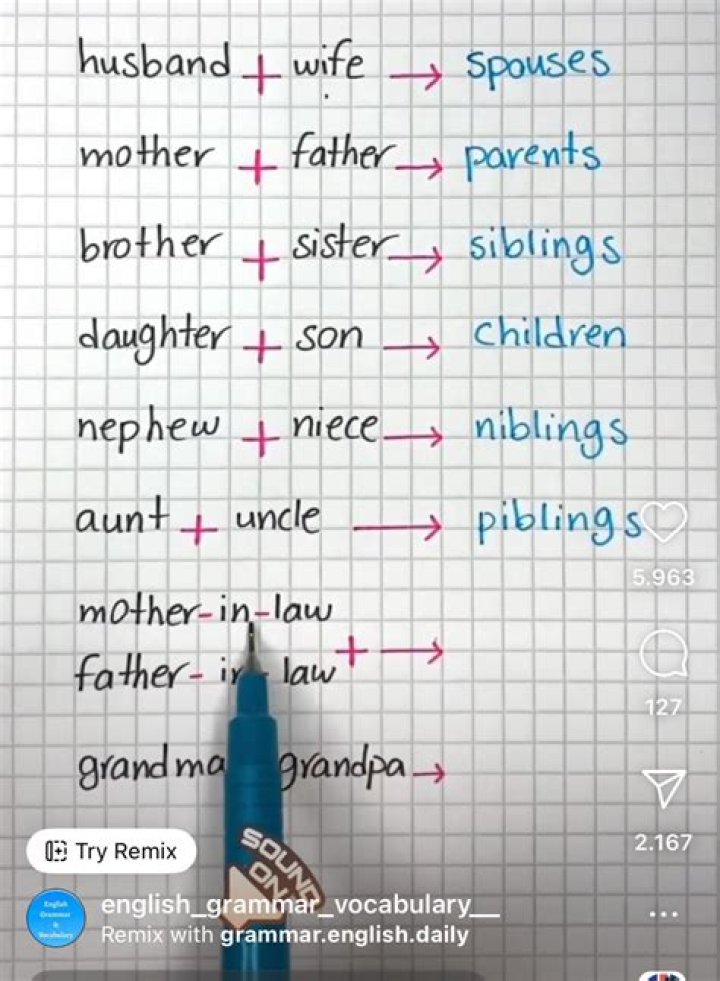 husband + wife → spouses
mother + father → parents
brother + sister → siblings
daughter + son → children
nephew + niece → niblings
aunt + uncle → piblings
5.963
mother-in-law
father- in- law + →
127
grandma grandpa →
2.167
Try Remix
SOUND
ON
English
Grammar
&
Vocabulary
english_grammar_vocabulary__
Remix with grammar.english.daily